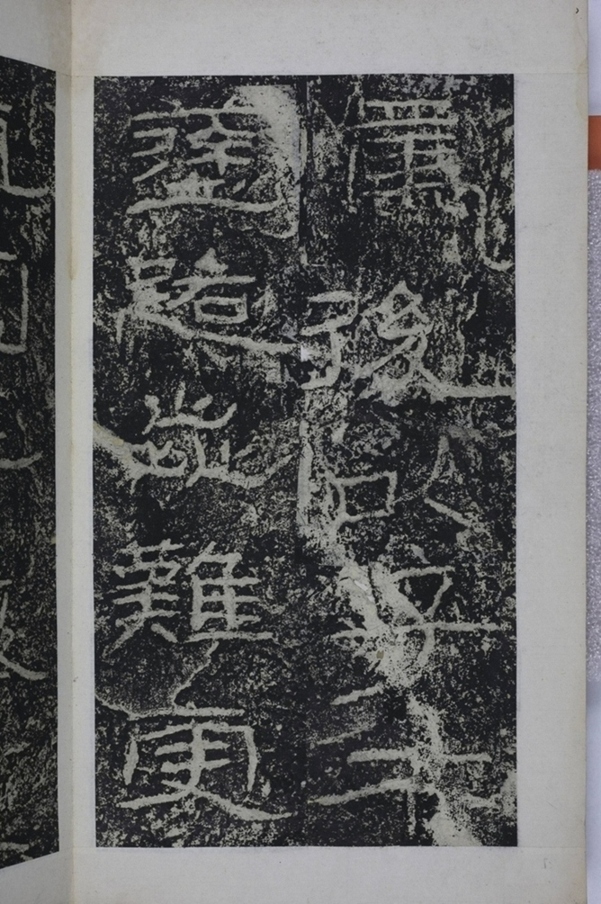 焉後以子午
塗路歰難更